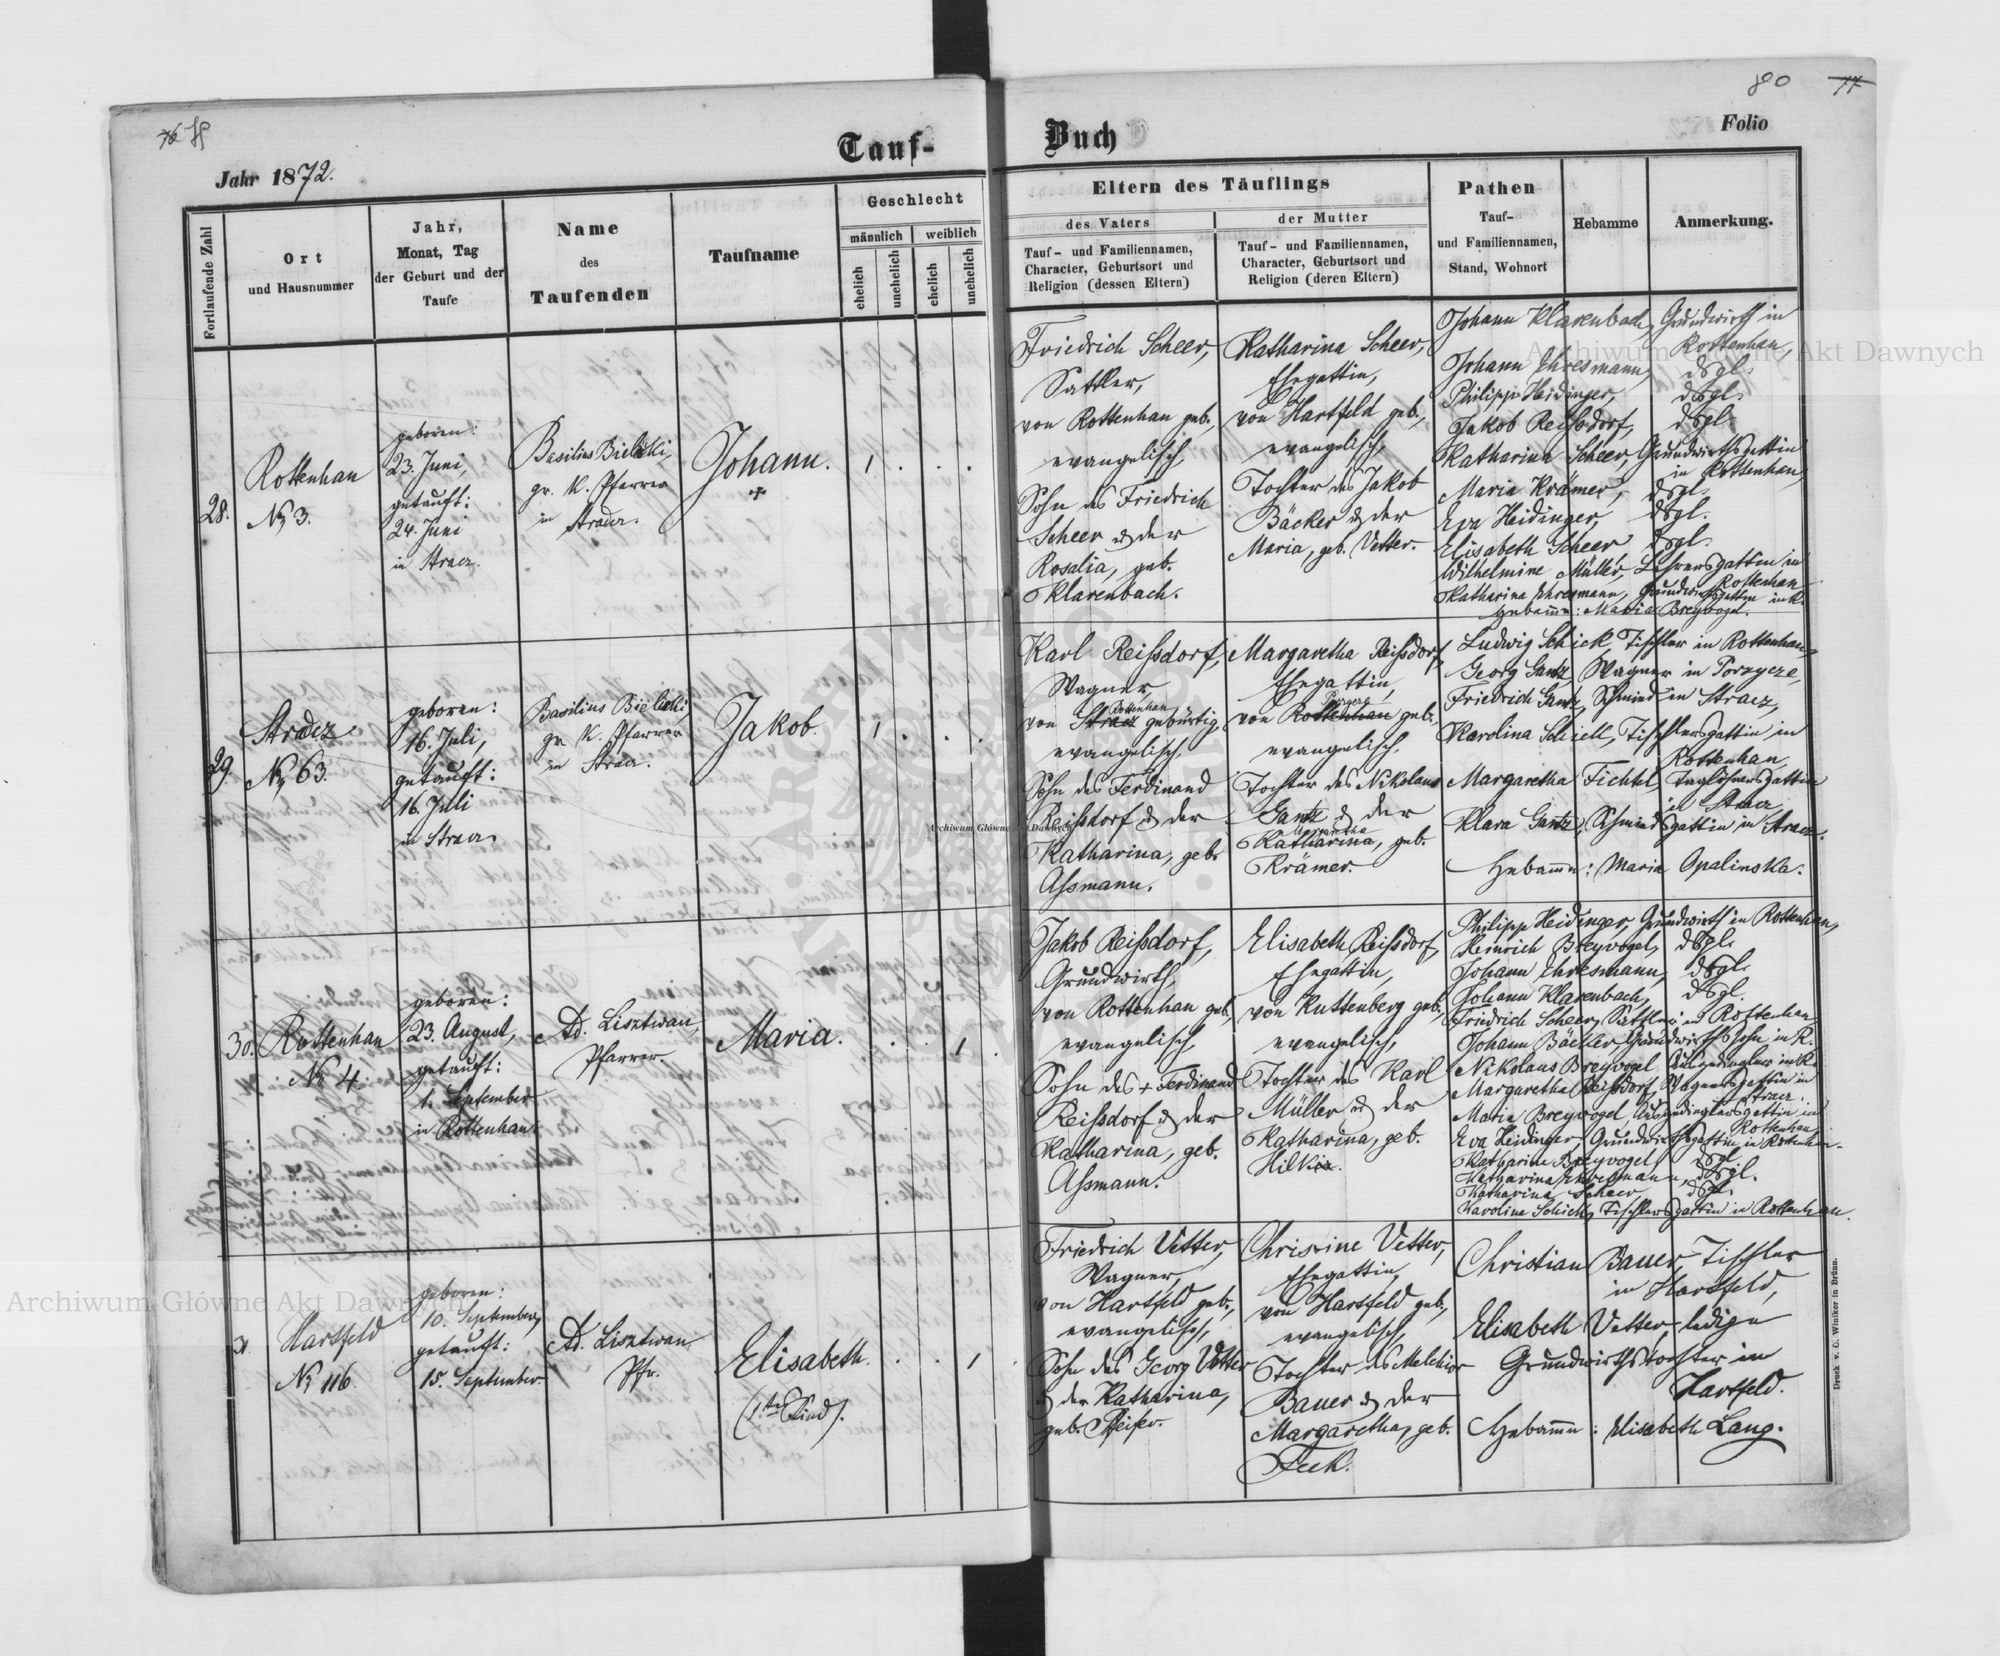 80
Tauf-
Buch
Folio
Jahr 1872.
Fortlaufende Zahl
Ort
und Hausnummer
Jahr,
Monat, Tag
der Geburt und der
Taufe
Name
des
Taufenden
Taufname
Geschlecht
männlich
weiblich
ehelich
unehelich
ehelich
unehelich
Eltern des Täuflings
des Vaters
Tauf- und Familiennamen,
Character, Geburtsort und
Religion (dessen Eltern)
der Mutter
Tauf- und Familiennamen,
Character, Geburtsort und
Religion (deren Eltern)
Pathen
Tauf-
und Familiennamen,
Stand, Wohnort
Hebamme
Anmerkung.
28.
Rottenhan
No 3.
geboren:
23. Juni,
getauft:
24. Juni
in Stracz.
Basilius Bielicki,
gr. K. Pfarrer
in Stracz.
Johann.
+
1
Friedrich Scheer,
Sattler,
von Rottenhan geb.,
evangelisch,
Sohn des Friedrich
Scheer & der
Rosalia, geb.
Klarenbach.
Katharina Scheer,
Ehegattin,
von Hartfeld geb.,
evangelisch,
Tochter des Jakob
Bäcker & der
Maria, geb. Vetter.
Johann Klarenbach, Grundwirth in
Rottenhan,
Johann Ehresmann, dsgl.
Philipp Heidinger, dsgl.
Jakob Reißdorf, dsgl.
Katharina Scheer, Grundwirthsgattin
in Rottenhan,
Maria Krämer, dsgl.
Eva Heidinger, dsgl.
Elisabeth Scheer dsgl.
Wilhelmine Müller, Lehrersgattin in
Rottenhan
Katharina Ehresmann, Grundwirthsgattin in R.
Hebamme: Maria Breyvogel.
29.
Stracz
No 63.
geboren:
16. Juli,
getauft:
16. Juli
in Stracz.
Basilius Bielicki,
gr. K. Pfarrer
in Stracz.
Jakob.
1
Karl Reißdorf,
Wagner,
Rottenhan
von Stracz gebürtig,
evangelisch,
Sohn des Ferdinand
Reißdorf & der
Katharina, geb.
Aßmann.
Margaretha Reißdorf,
Ehegattin,
von Rottenhan geb.
evangelisch,
Tochter des Nikolaus
Gantz & der
Katharina, geb.
Krämer.
Ludwig Schick, Tischler in Rottenhan,
Georg Gantz, Wagner in Porzycze,
Friedrich Gantz, Schmied in Stracz,
Karolina Schick, Tischlersgattin in
Rottenhan,
Margaretha Fichtel, Taglöhnersgattin
in Stracz,
Klara Gantz, Schmiedsgattin in Stracz.
Hebamme: Maria Opalinska.
30.
Rottenhan
No 4.
geboren:
23. August,
getauft:
1. September
in Rottenhan.
Ad. Lisztwan,
Pfarrer.
Maria.
1
Jakob Reißdorf,
Grundwirth,
von Rottenhan geb.,
evangelisch,
Sohn des + Ferdinand
Reißdorf & der
Katharina, geb.
Aßmann.
Elisabeth Reißdorf,
Ehegattin,
von Kuttenberg geb.,
evangelisch,
Tochter des Karl
Müller & der
Katharina, geb.
Philipp Heidinger, Grundwirth in Rottenhan,
Heinrich Breyvogel, dsgl.
Johann Ehresmann, dsgl.
Johann Klarenbach, dsgl.
Friedrich Scheer, Sattler in Rottenhan
Johann Bäcker, Grundwirthssohn in R.
Nikolaus Breyvogel, Ausgedingler in R.
Margaretha Reißdorf, Wagnersgattin in
Stracz.
Maria Breyvogel, Ausgedinglersgattin in
Rottenhan,
Eva Heidinger, Grundwirthsgattin in Rottenhan.
Katharina Breyvogel, dsgl.
Katharina Ehresmann, dsgl.
Katharina Scheer dsgl.
Karolina Schick, Tischlersgattin in Rottenhan.
31.
Hartfeld
No 116.
geboren:
10. September,
getauft:
15. September.
Ad. Lisztwan,
Pfr.
Elisabeth.
(1tes Kind).
1
Friedrich Vetter,
Wagner,
von Hartfeld geb.,
evangelisch,
Sohn des Georg Vetter
& der Katharina,
geb. Pfeifer.
Christine Vetter,
Ehegattin,
von Hartfeld geb.,
evangelisch,
Tochter des Melchior
Bauer & der
Margaretha, geb.
Feck.
Christian Bauer, Tischler
in Hartfeld,
Elisabeth Vetter, ledige
Grundwirthstochter in
Hartfeld.
Hebamme: Elisabeth Lang.
Druck v. C. Winiker in Brünn.
Archiwum Główne Akt Dawnych
Archiwum Główne Akt Dawnych
Archiwum Główne Akt Dawnych